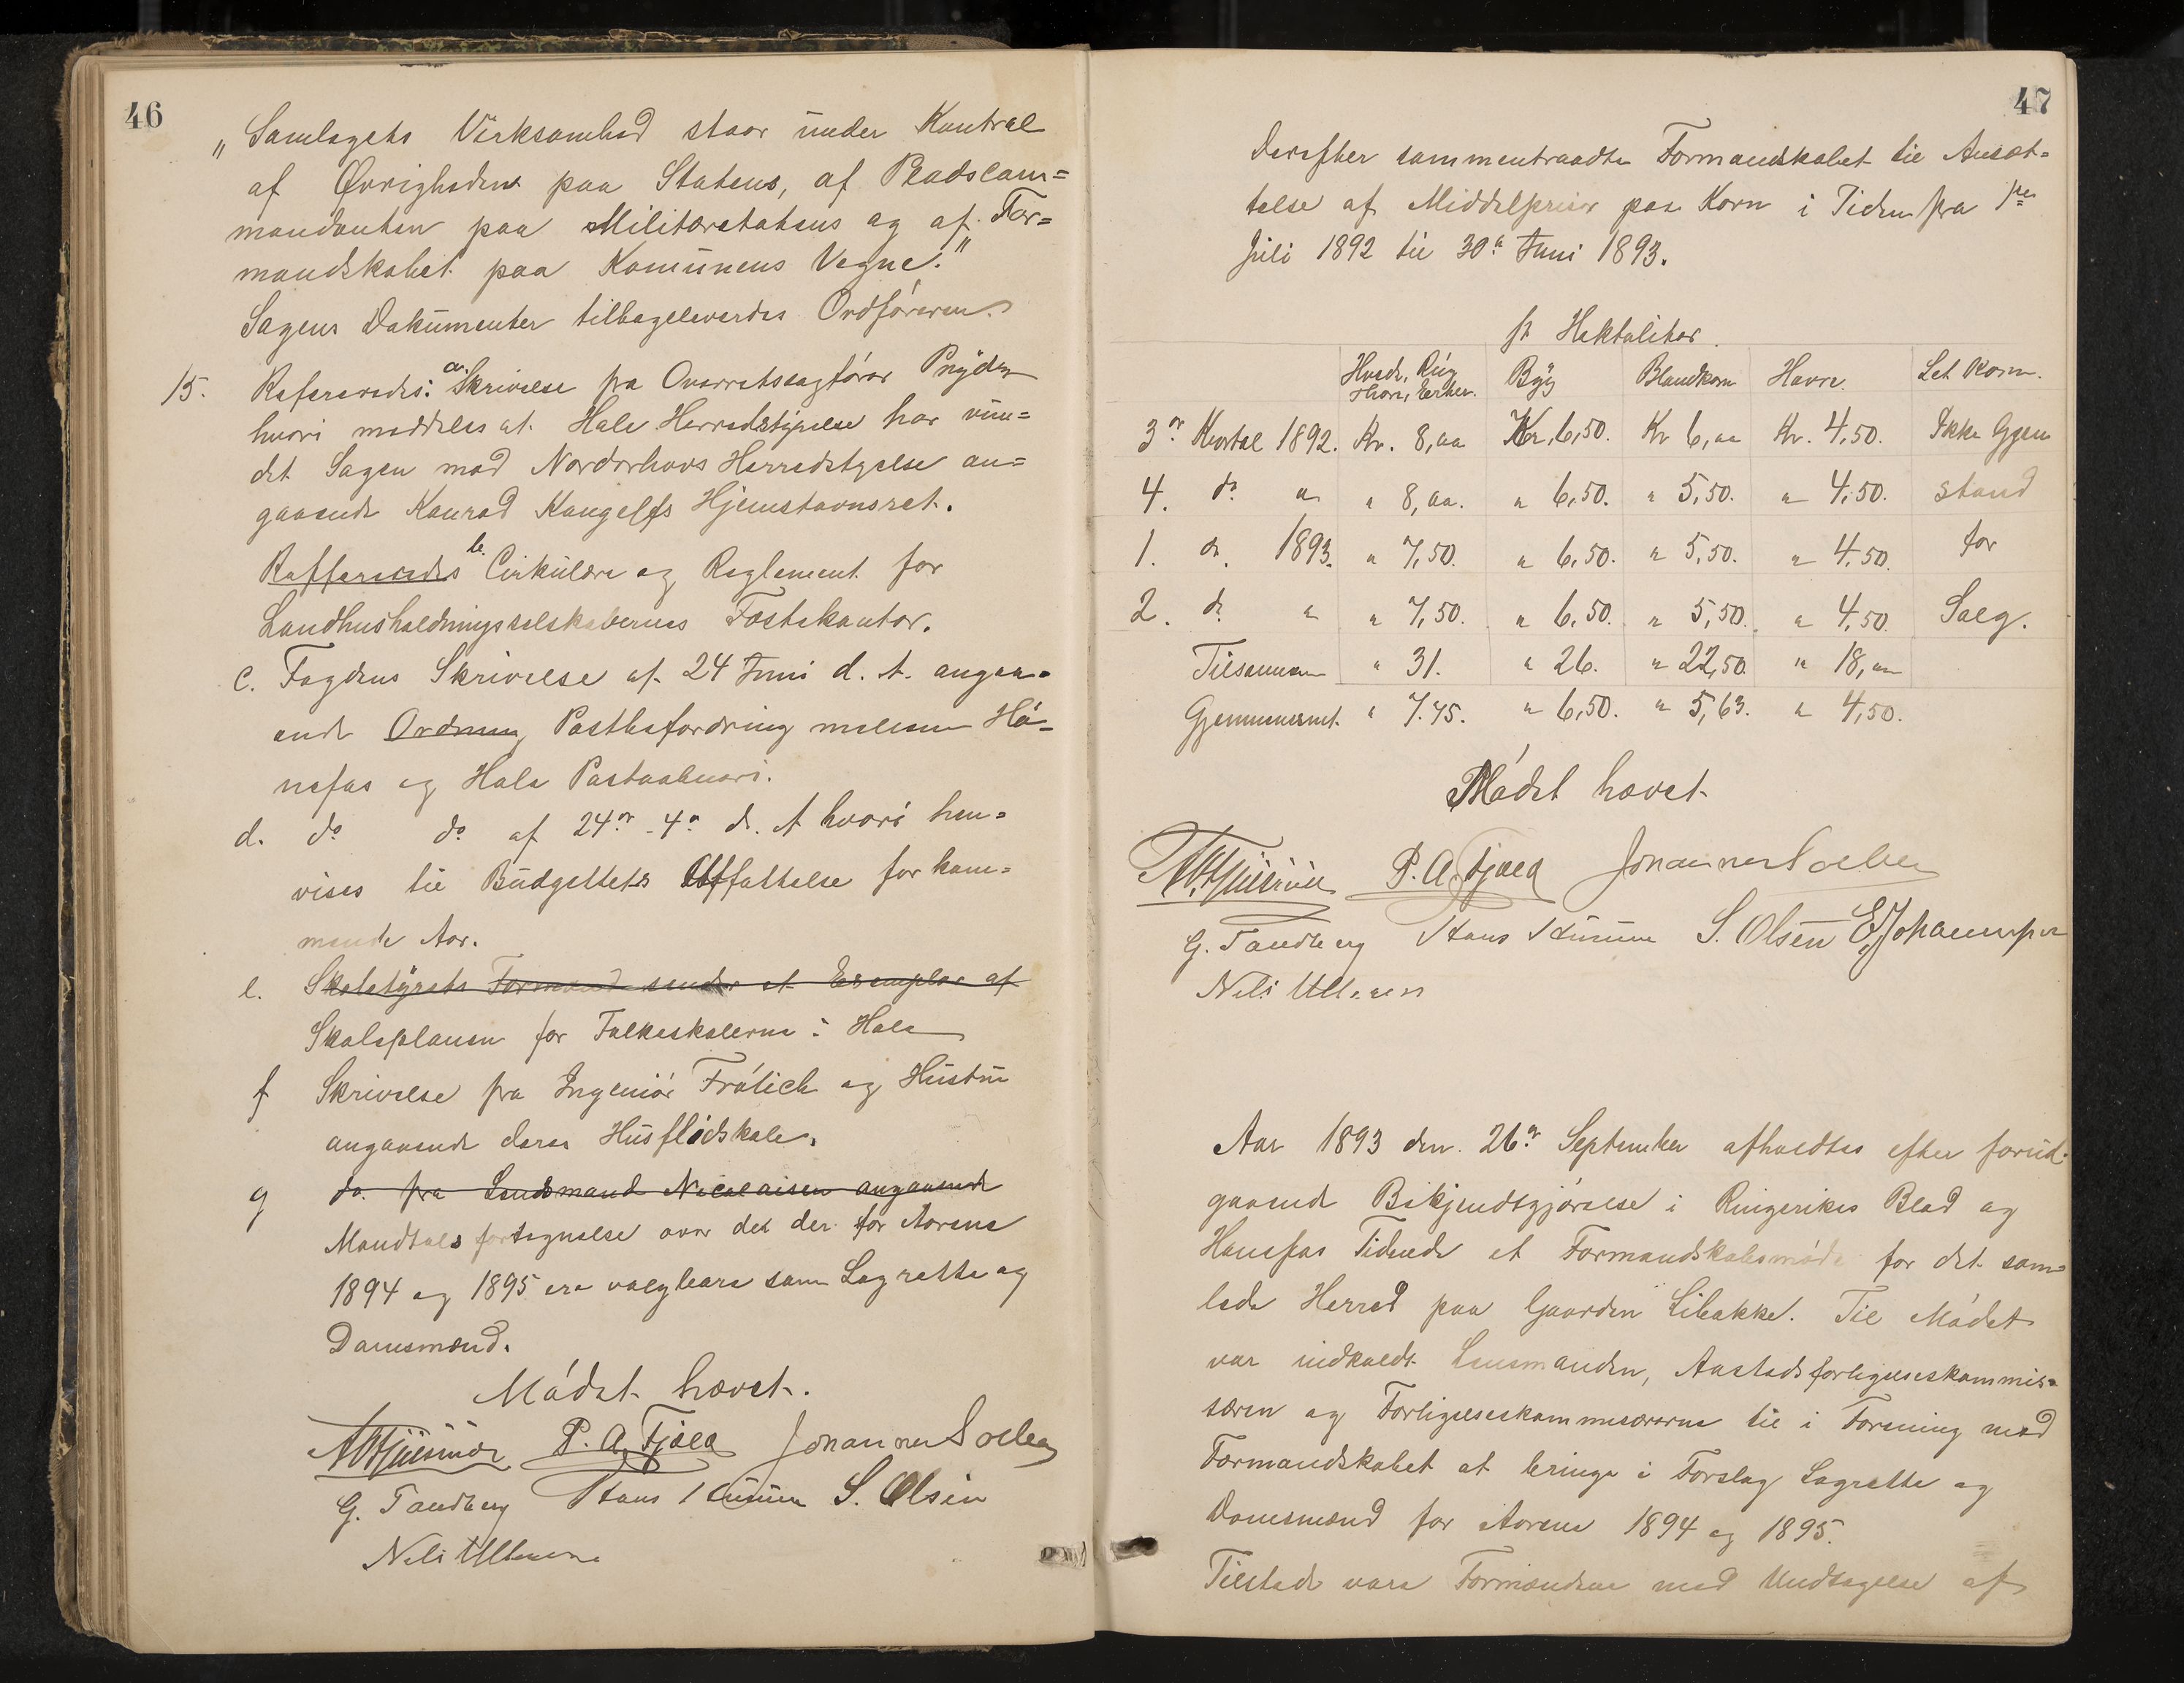 46
„Samlagets Virksomhed staar under Kontrol
af Øvrigheden paa Statens, af Pladscom=
mandanten paa Militæretatens og af For=
mandskabet paa Komunens Vegne."
Sagens Dokumenter tilbageleverdes Ordføreren.
15. Refereredes: a. Skrivelse fra Overretssagfører Prydz
hvori meddeles at Hole Herredstyrelse har vun=
det Sagen mod Norderhovs Herredstyrelse an=
gaaende Konrad Hjemstavnsret.
Reffereredes b. Cirkulære og Reglement for
Landhusholdningsselskabernes Fæstekontor.
c. Fogdens Skrivelse af 24 Juni d. A. angaa=
ende Ordning Postbefordring mellem Hø=
nefos og Hole Postaabneri.
d. do do af 24de 4de d. A hvori hen=
vises til Budgettets Affattelse for kom=
mende Aar.
e. Skolestyrets Formand sender et Exemplar af
Skoleplanen for Folkeskolerne i Hole
f Skrivelse fra Ingeniør Frölich og Hustru
angaaende deres Husflidskole.
g do. fra Lensmand Nicolaisen angaaende
Mandtalsfortegnelse over det der for Aarene
1894 og 1895 ere valgbare som Lagrette og
Domsmænd.
Mødet hævet.
P. A. Fjæld Johannes Solberg
G. Tandberg Hans S. Olsen
Nils
47
Derefter sammentraadte Formandskabet til Ansæt=
telse af Middelpriser paa Korn i Tiden fra 1ste
Juli 1892 til 30te Juni 1893.
pr Hektoliter.
Hvede, Rug Byg Blandkorn Havre. Let Korn.
Erter.
3die Kvartal 1892. Kr. 8,00 Kr. 6,50. Kr 6,00 Kr. 4,50. Ikke Gjen
4. do " " 8,00. " 6,50. " 5,50. " 4,50. stand
1. do. 1893. " 7,50. " 6,50. " 5,50. " 4,50. for
2. do " " 7,50. " 6,50. " 5,50. " 4,50. Salg.
Tilsammen " 31. " 26. " 22,50. " 18,00
Gjennemsnit. " 7.75. " 6,50. " 5,63. " 4,50.
Mødet hævet
P. A. Fjæld Johannes Solberg
G. Tandberg Hans S. Olsen E. Johannesen
Nils
Aar 1893 den 26de September afholdtes efter forud=
gaaende Bekjendtgjørelse i Ringerikes Blad og
Hønefos Tidende et Formandskabsmøde for det sam=
lede Herred paa Gaarden Libakke. Til Mødet
var indkaldt Lensmanden, Aastedsforligelseskommis=
særen og Forligelseskommissærerne til i Forening med
Formandskabet at bringe i Forslag Lagrette og
Domsmænd for Aarene 1894 og 1895.
Tilstede vare Formændene med Undtagelse af